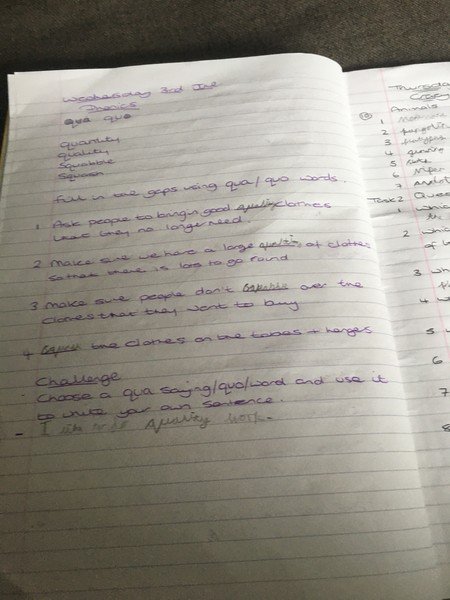 Wednesday 3rd
Phonics
qua quo
quantity
quality
squabble
squash
Fill in the gaps using qua/quo words.
1 Ask people to bring in good quality clothes
that they no longer need.
2 Make sure we have a large of clothes
so that there is lots to go round
3 Make sure people don't over the
clothes that they want to buy
4 the clothes on the tables + hangers
Challenge
- Choose a qua saying/quo/word and use it
to write your own sentence.
- I like to do quality work.
Thursday
Animals
1
2
3
4
5
6
7
Task 2 Ques
1 Whic
2 Whic
3 Wh
4
5
6
7
8